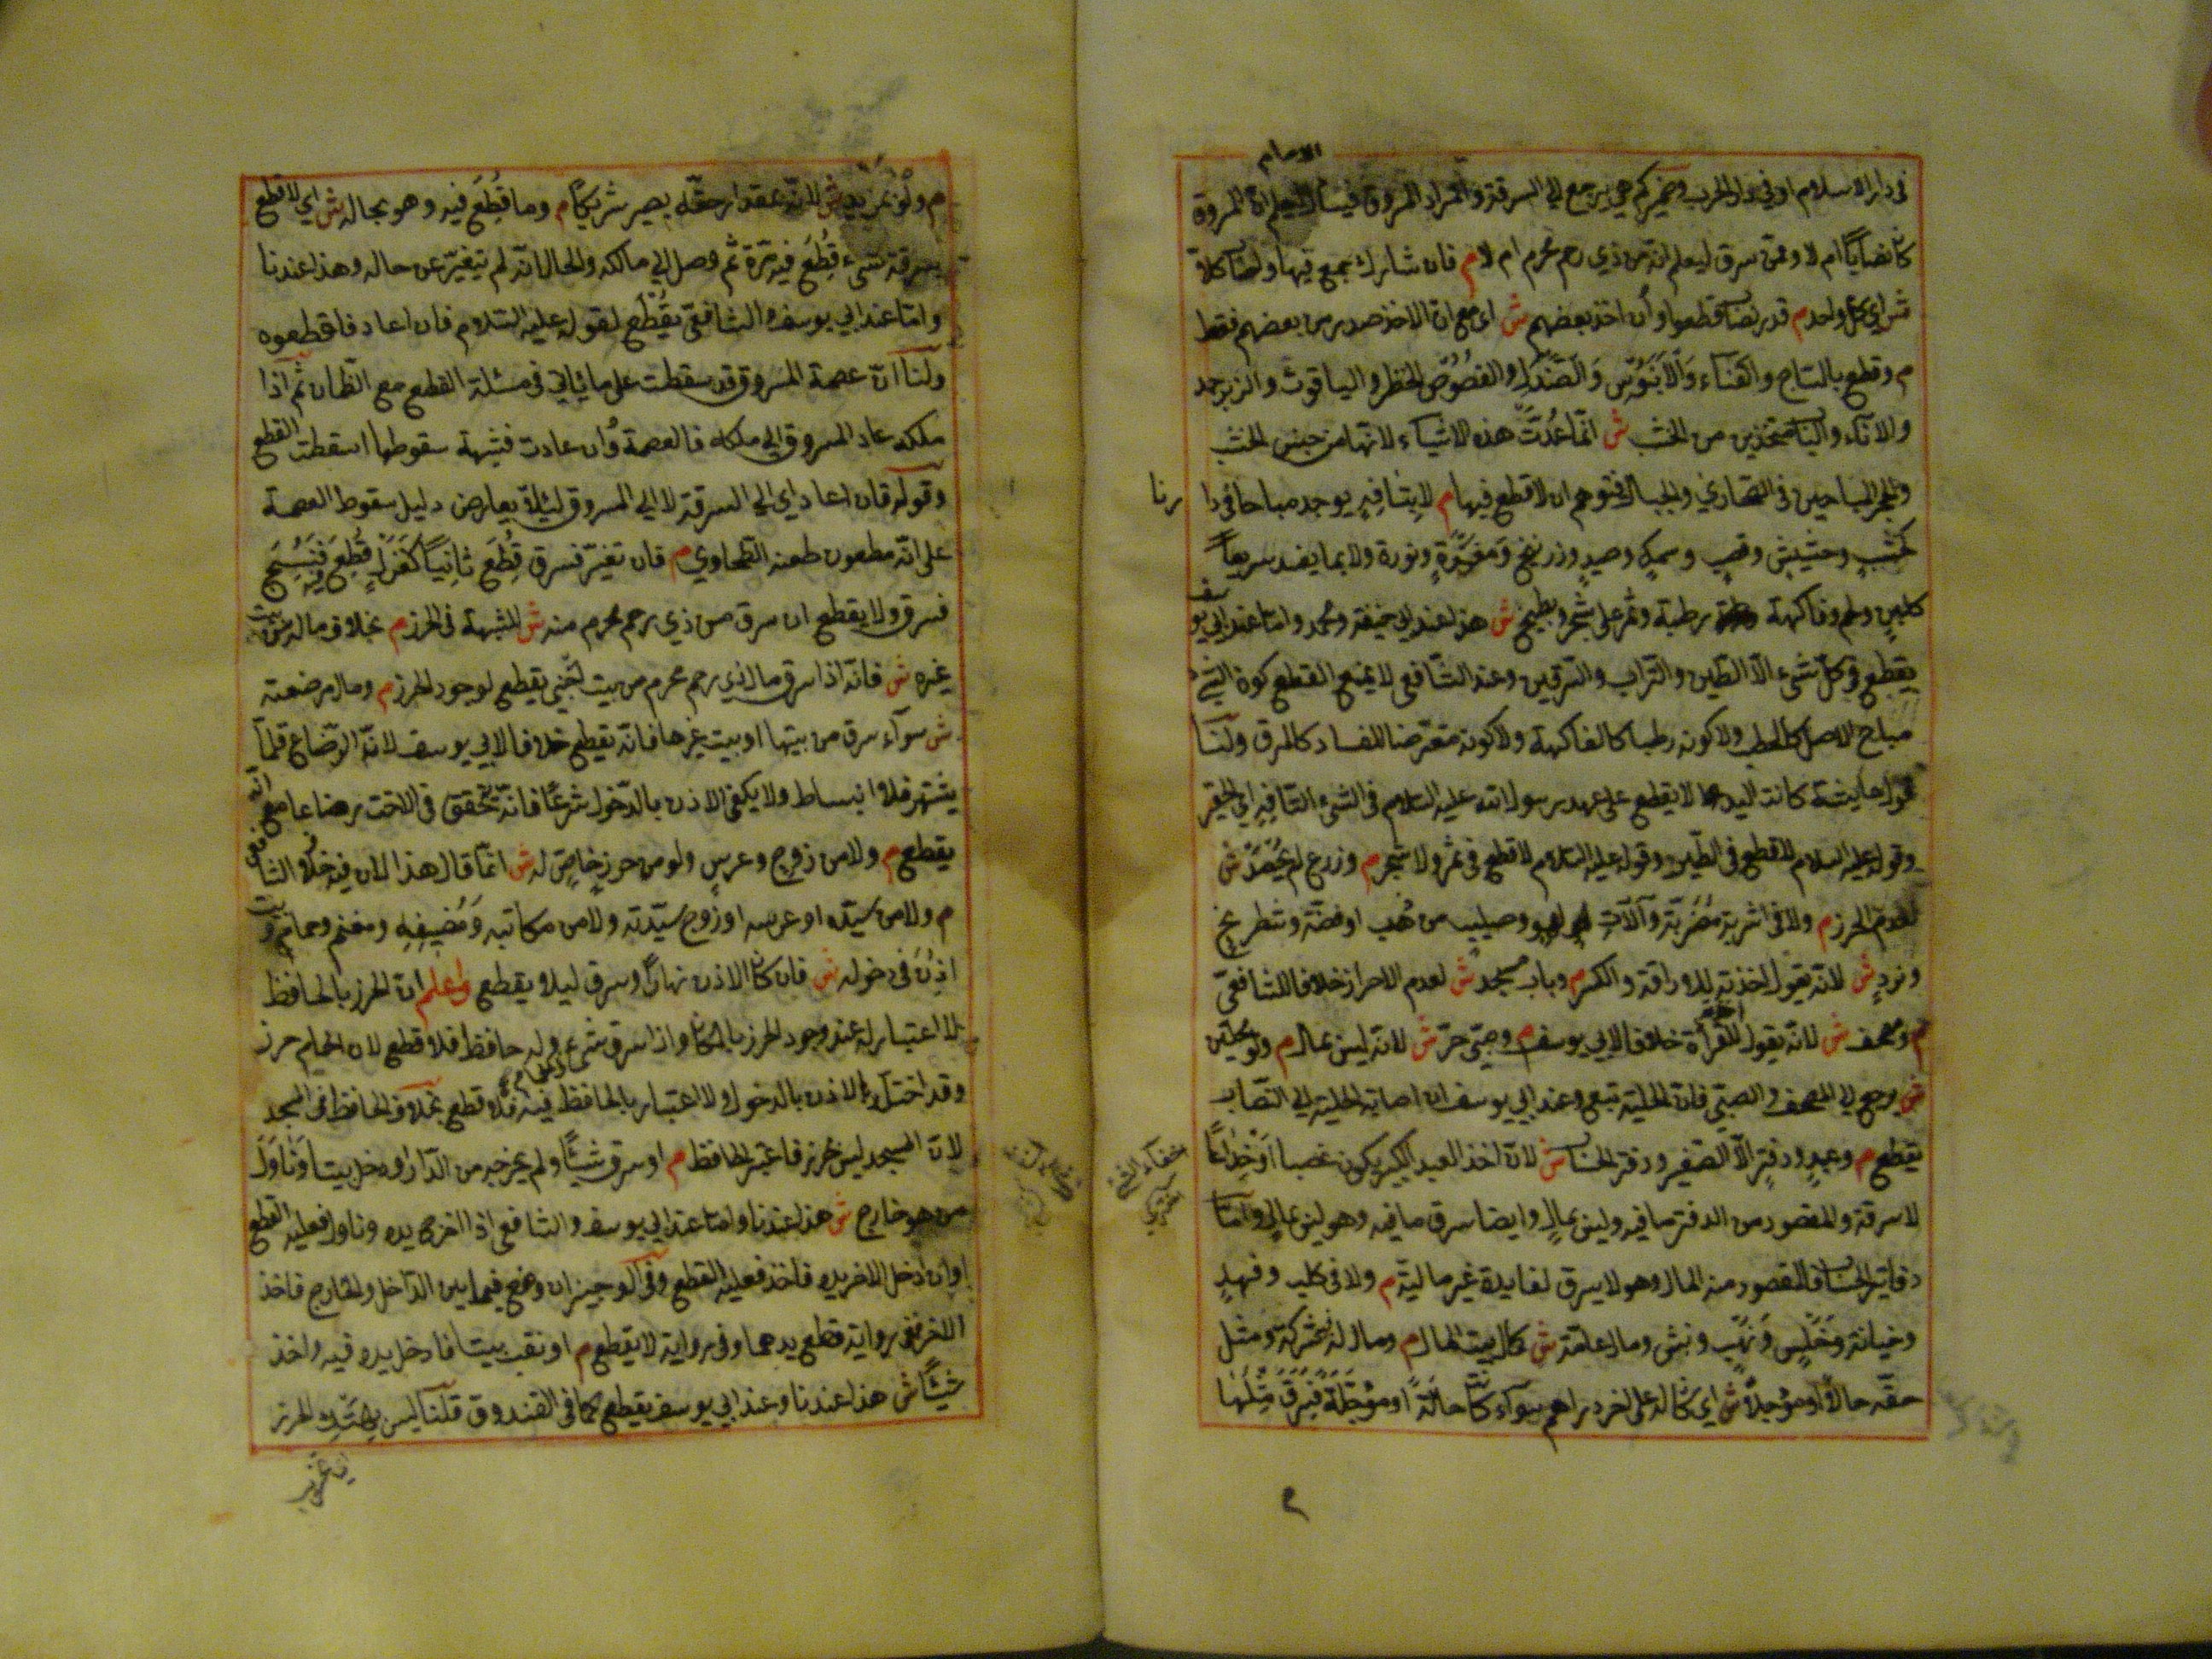 الامام
في دار الاسلام او في دار الحرب وضمير كم هي يرجع الي السرقة والمراد المسروق فيسأل ليعلم ان المسروق
كان نصابا ام لا وممن سرق ليعلم انه من ذي رحم محرم ام لا م فان شارك جمع فيها واصاب كلا
ش اي كل واحد م قدر نصاب قطعوا وان اخذ بعضهم ش اي مع ان الاخذ صدر من بعضهم فقط
م وقطع بالساج والقناء والآبنوس والصندل والفصوص الخضر والياقوت والزبرجد
والاناء والباب متخذين من الخشب ش انما عدت هذه الاشياء لانها من جنس الخشب
والحجر المباحين في الصحاري والجبال فتوهم ان لا قطع فيها م لا بتافه يوجد مباحا في دا
رنا
كخشب وحشيش وقصب وسمك وصيد وزرنيخ ومغرة ونورة ولا بما يفسد سريعا
كلبن ولحم وفاكهة رطبة وثمر على شجر وبطيخ ش هذا عند ابي حنيفة ومحمد واما عند ابي يو
سف
يقطع في كل شيء الا الطين والتراب والسرقين وعند الشافعي لا يمنع القطع كون الشيء
مباح الاصل كالحطب ولا كونه رطبا كالفاكهة ولا كونه متعرضا للفساد كالمرق ولنا
قول عايشة كانت اليد لا يقطع على عهد رسول الله عليه السلام في الشيء التافه اي الحقير
وقوله عليه السلام لا قطع في الطير وقوله عليه السلام لا قطع في ثمر ولا شجر م وزرع لم يحصد ش
لعدم الحرز م ولا في اشربة مطربة وآلات لهو وصليب من ذهب او فضة وشطرنج
ونرد ش لانه يقول اخذته للاراقة والكسر م وباب مسجد ش لعدم الاحراز خلافا للشافعي
م ومصحف ش لانه يقول للقرأة خلافا لابي يوسف م وصبي حر ش لانه ليس بمال م ولو محليين
ش يرجع الي المصحف والصبي فان الحلية تبع وعند ابي يوسف ان اصابة الحلية الي النصاب
يقطع م وعبد ودفتر الا الصغير ودفتر الحساب ش لان اخذ العبد الكبير يكون غصبا او خداعا
لا سرقة والمقصود من الدفتر ما فيه وليس بمال وايضا سرق ما فيه وهو ليس بمال واما
دفاتر الحساب فالمقصود منه المال وهو لا يسرق لفايدة غير مالية م ولا في كلب وفهد
وخيانة وخلس ونهب ونبش ومال عامة ش كمال بيت المال م ومال له فيه شركة ومثل
حقه حالا او مؤجلا ش اي كان له على اخر دراهم سواء كانت حالة او مؤجلة فسرق مثلها
م ولو بمزيد ش لانه بمقدار حقه يصير شريكا م وما قطع فيه وهو بحاله ش اي لا قطع
بسرقة شيء قطع فيه مرة ثم وصل الي مالكه والحال انه لم يتغير عن حاله وهذا عندنا
واما عند ابي يوسف والشافعي يقطع لقوله عليه السلام فان اعاد فاقطعوه
ولنا ان عصمة المسروق قد سقطت على ما يأتي في مسئلة القطع مع الضمان ثم اذا
ملكه عاد المسروق الي ملكه فالعصمة وان عادت فشبهة سقوطها اسقطت القطع
وقوله فان اعاد اي الي السرقة لا الي المسروق لئلا يعارض دليل سقوط العصمة
على انه مطعون طعنه الطحاوي م فان تغير فسرق قطع ثانيا كغزل قطع فيه فنسج
فسرق ولا يقطع ان سرق من ذي رحم محرم منه ش للشبهة في الحرز م بخلاف ماله من بيت
غيره ش فانه اذا سرق مال ذي رحم محرم من بيت اجنبي يقطع لوجود الحرز م ومال مرضعته
ش سواء سرق من بيتها او بيت غيرها فانه يقطع خلافا لابي يوسف لانه الرضاع قلما
يشتهر فلا انبساط ولا يكفي الاذن بالدخول شرعا فانه تحقق في الاخت رضاعا مع انه
يقطع م ولا من زوج وعرس ولو من حرز خاص له ش انما قال هذا لان فيه خلاف الشا
فعي
م ولا من سيده او عرسه او زوج سيدته ولا من مكاتبه ومضيفه ومغنم وحمام وبيت
اذن في دخوله ش فان كان الاذن نهارا وسرق ليلا يقطع واعلم ان الحرز بالحافظ
لا اعتبار له عند وجود الحرز بالمكان واذا سرق شيء وله حافظ فلا قطع لان الحمام حرز
وقد اختل بالاذن بالدخول ولا اعتبار بالحافظ فيه فلا قطع بخلاف الحافظ في المسجد
لان المسجد ليس بحرز فاعتبر الحافظ م او سرق شيئا ولم يخرجه من الدار او دخل بيتا وناول
من هو خارج ش هذا عندنا واما عند ابي يوسف والشافعي اذا اخرج يده وناول فعليه القطع
وان ادخل الاخر يده فاخذ فعليه القطع وفي الوجيز ان وضع فيما بين الداخل والخارج فاخذ
الاخر ففي رواية قطع يدهما وفي رواية لا يقطع م او نقب بيتا فادخل يده فيه واخذ
شيئا ش هذا عندنا وعند ابي يوسف يقطع كما في الصندوق قلنا ليس بهتك الحرز